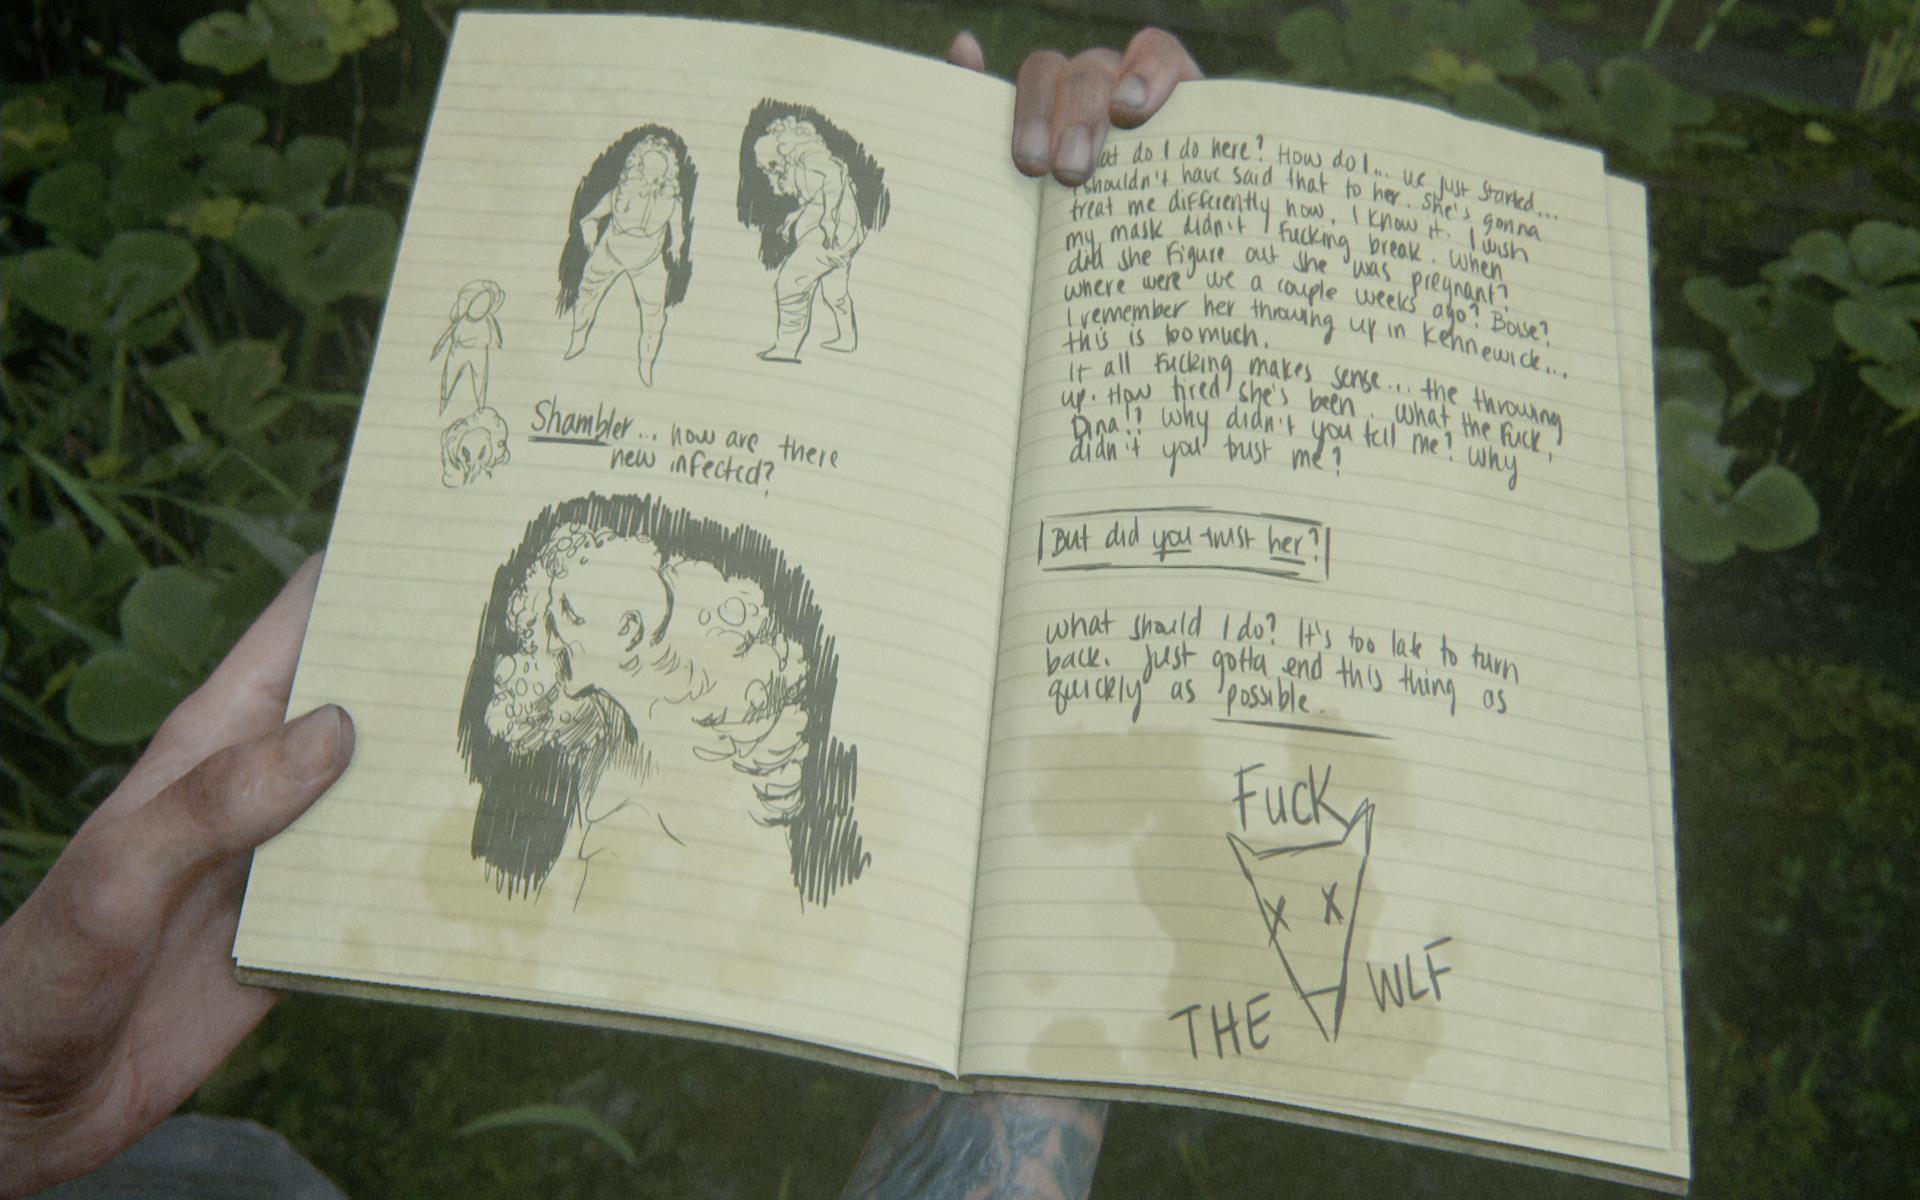 Shambler... how are there
new infected?
at do I do here? How do I... we just started...
I shouldn't have said that to her. She's gonna
treat me differently now. I know it. I wish
my mask didn't fucking break. When
did she figure out she was pregnant?
where were we a couple weeks ago? Boise?
I remember her throwing up in Kennewick...
this is too much.
It all fucking makes sense... the throwing
up. How tired she's been. What the fuck,
Dina!? Why didn't you tell me? Why
didn't you trust me?
But did you trust her?
what should I do? It's too late to turn
back. Just gotta end this thing as
quickly as possible.
Fuck
THE WLF